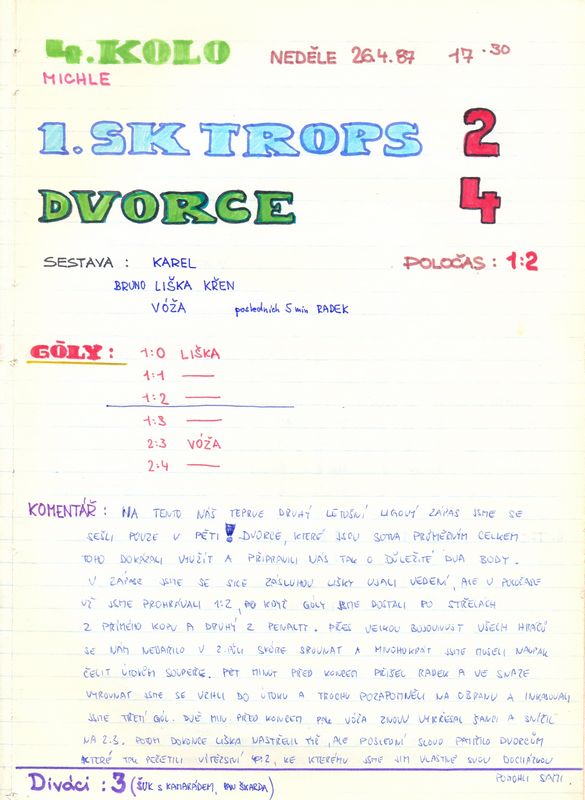 4. KOLO NEDĚLE 26.4.87 17.30
MICHLE
1. SK TROPS 2
DVORCE 4
SESTAVA : KAREL POLOČAS : 1:2
BRUNO LIŠKA KŘEN
VÓŽA posledních 5 min RADEK
GÓLY : 1:0 LIŠKA
1:1 —
1:2 —
1:3 —
2:3 VÓŽA
2:4 —
KOMENTÁŘ : NA TENTO NÁŠ TEPRVE DRUHÝ LETOŠNÍ LIGOVÝ ZÁPAS JSME SE
SEŠLI POUZE V PĚTI ! DVORCE, KTERÉ JSOU SOTVA PRŮMĚRNÝM CELKEM
TOHO DOKÁZALI VYUŽÍT A PŘIPRAVILI NÁS TAK O DŮLEŽITÉ DVA BODY.
V ZÁPASE JSME SE SICE ZÁSLUHOU LIŠKY UJALI VEDENÍ, ALE V POLOČASE
UŽ JSME PROHRÁVALI 1:2, KDYŽ GÓLY JSME DOSTALI PO STŘELÁCH
Z PŘÍMÉHO KOPU A DRUHÝ Z PENALTY. PŘES VELKOU BOJOVNOST VŠECH HRÁČŮ
SE NÁM NEDAŘILO V 2.PŮLI SKÓRE SROVNAT A MNOHOKRÁT JSME MUSELI NAOPAK
ČELIT ÚTOKŮM SOUPEŘE. PĚT MINUT PŘED KONCEM PŘIŠEL RADEK A VE SNAZE
VYROVNAT JSME SE VRHLI DO ÚTOKU A TROCHU POZAPOMNĚLI NA OBRANU A INKASOVALI
JSME TŘETÍ GÓL. DVĚ MIN. PŘED KONCEM PAK VÓŽA ZNOVU VYKŘESAL ŠANCI A SNÍŽIL
NA 2:3. POTOM DOKONCE LIŠKA NASTŘELIL TYČ, ALE POSLEDNÍ SLOVO PATŘILO DVORCŮM
KTERÉ TAK PEČETILI VÍTĚZSTVÍ 4:2, KE KTERÉMU JSME JIM VLASTNĚ SVOU DOCHÁZKOU
POMOHLI SAMI.
Diváci : 3 (ŠUK S KAMARÁDEM, PAN ŠKARDA)